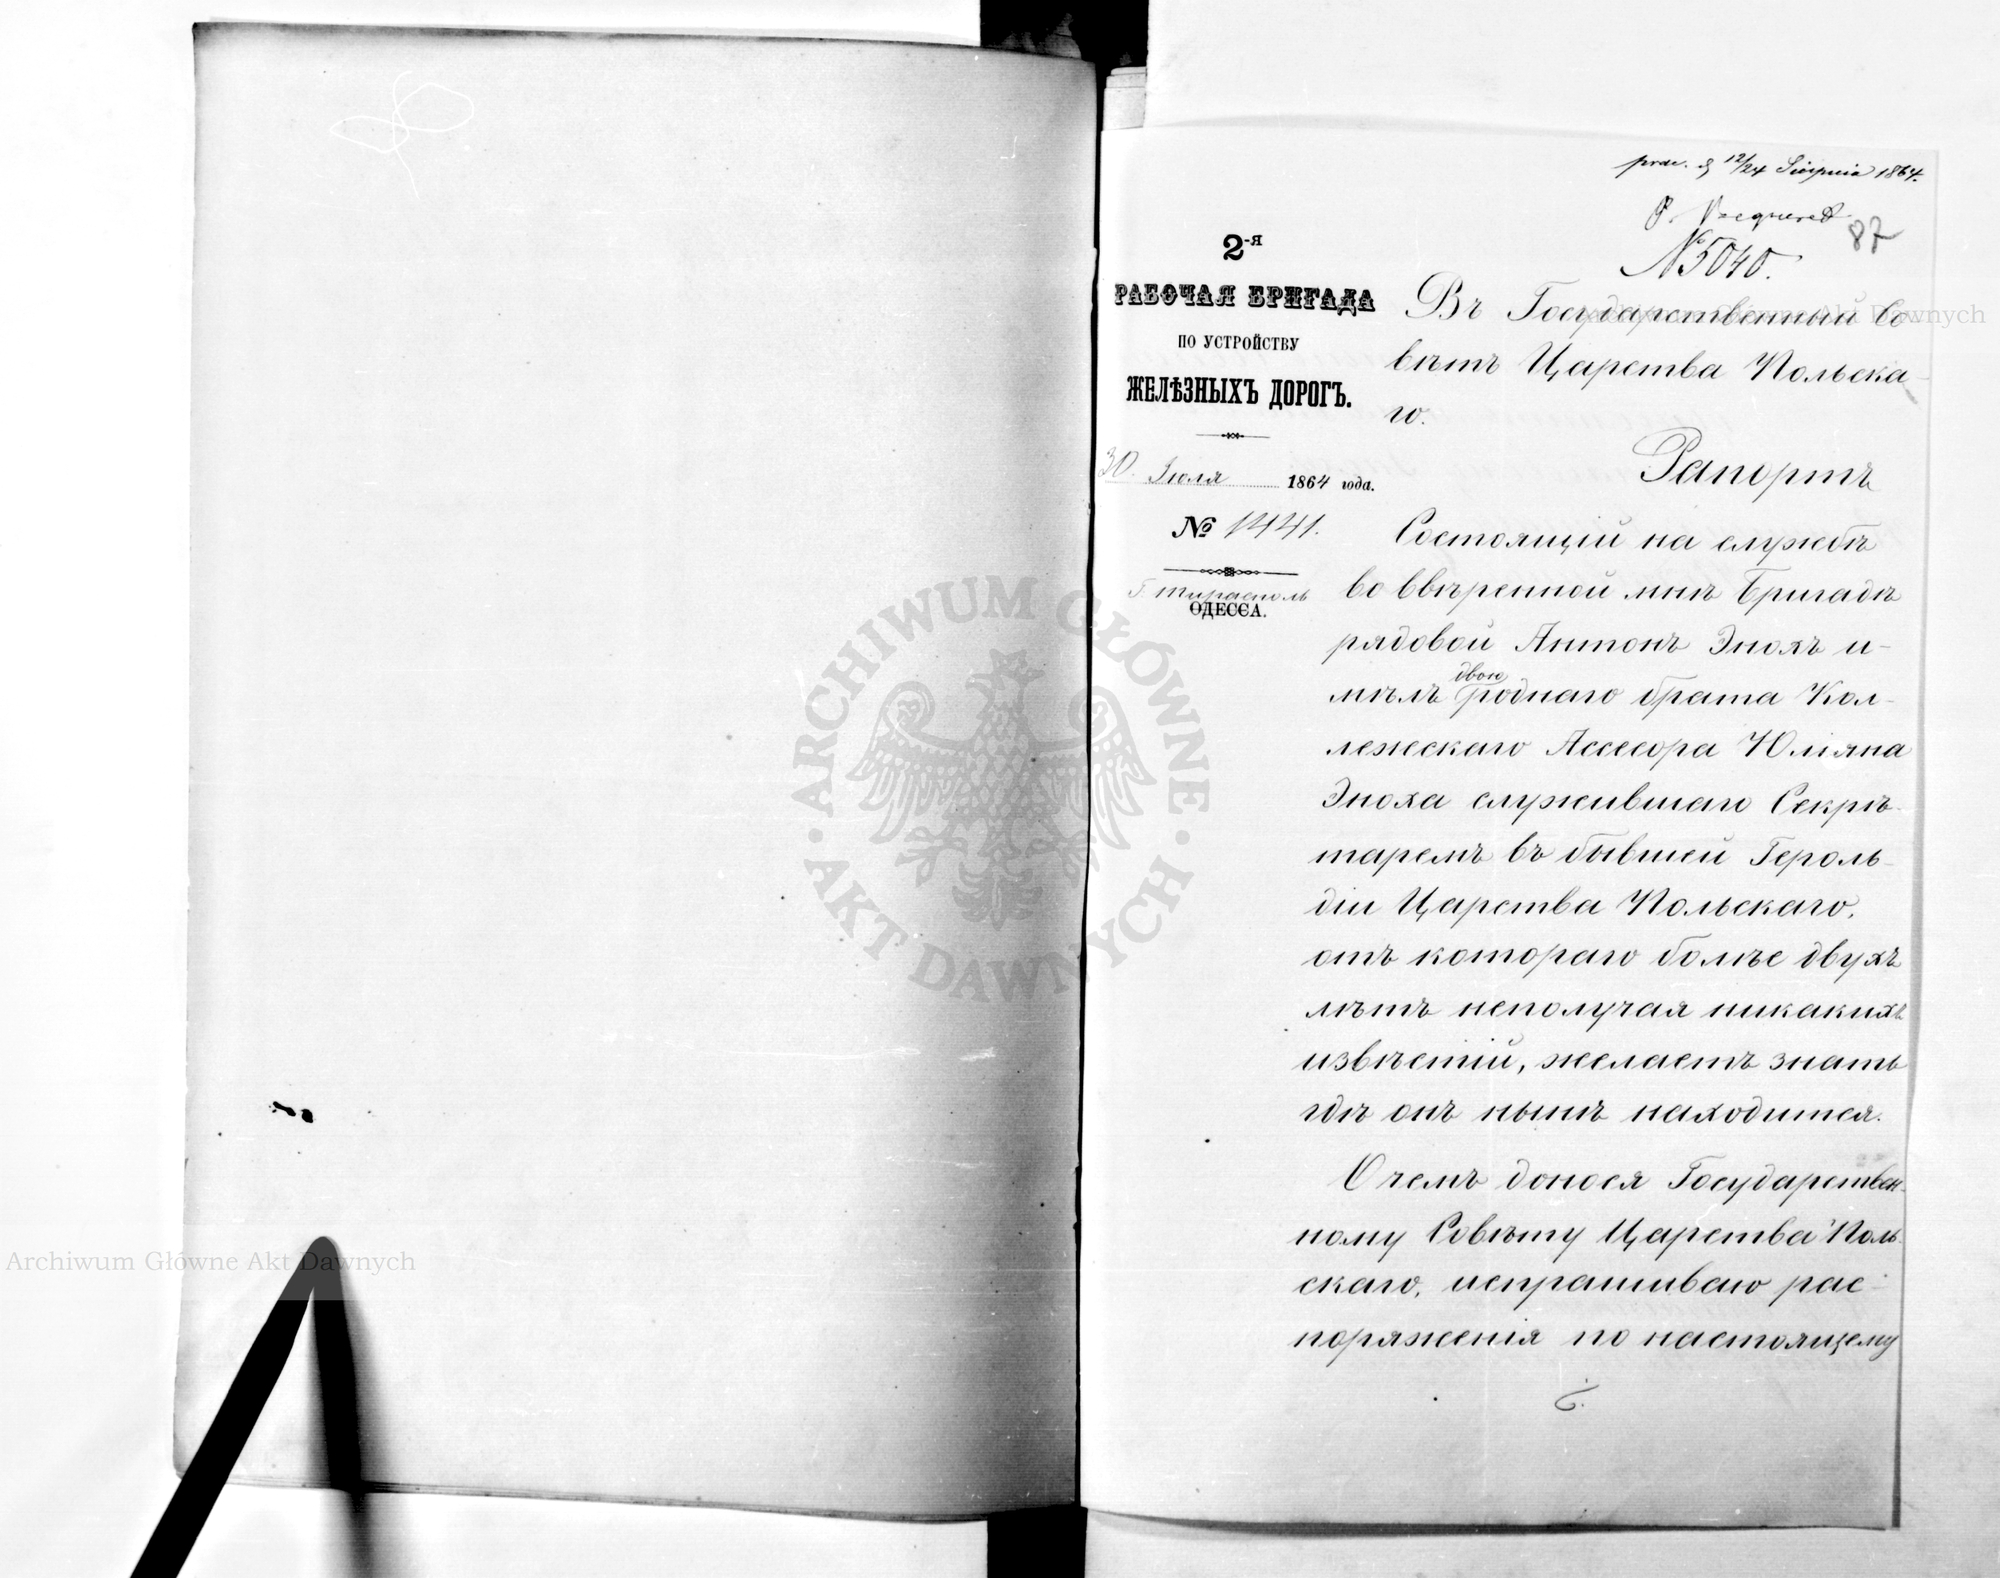 prae. d 12/24 Sierpnia 1864.
87
№ 5040.
2-я
РАБОЧАЯ БРИГАДА
ПО УСТРОЙСТВУ
ЖЕЛѢЗНЫХЪ ДОРОГЪ.
30. Іюля 1864 года.
№ 1441.
Г. Тирасполь
ОДЕССА.
Въ Государственный Со-
вѣтъ Царства Польска-
го.
Рапортъ
Состоящій на службѣ
во ввѣренной мнѣ Бригадѣ
рядовой Антонъ Энохъ и-
двою
мѣлъ роднаго брата Кол-
лежскаго Ассесора Юліяна
Эноха служившаго Секрѣ-
таремъ въ бывшей Героль-
діи Царства Польскаго,
отъ котораго болѣе двухъ
лѣтъ неполучая никакихъ
извѣстій, желаетъ знать
гдѣ онъ нынѣ находится.
О чемъ донося Государствен-
ному Совѣту Царства Поль-
скаго, испрашиваю рас-
поряженія по настоящему
ARCHIWUM GŁÓWNE · AKT DAWNYCH ·
Archiwum Główne Akt Dawnych
Akt Dawnych